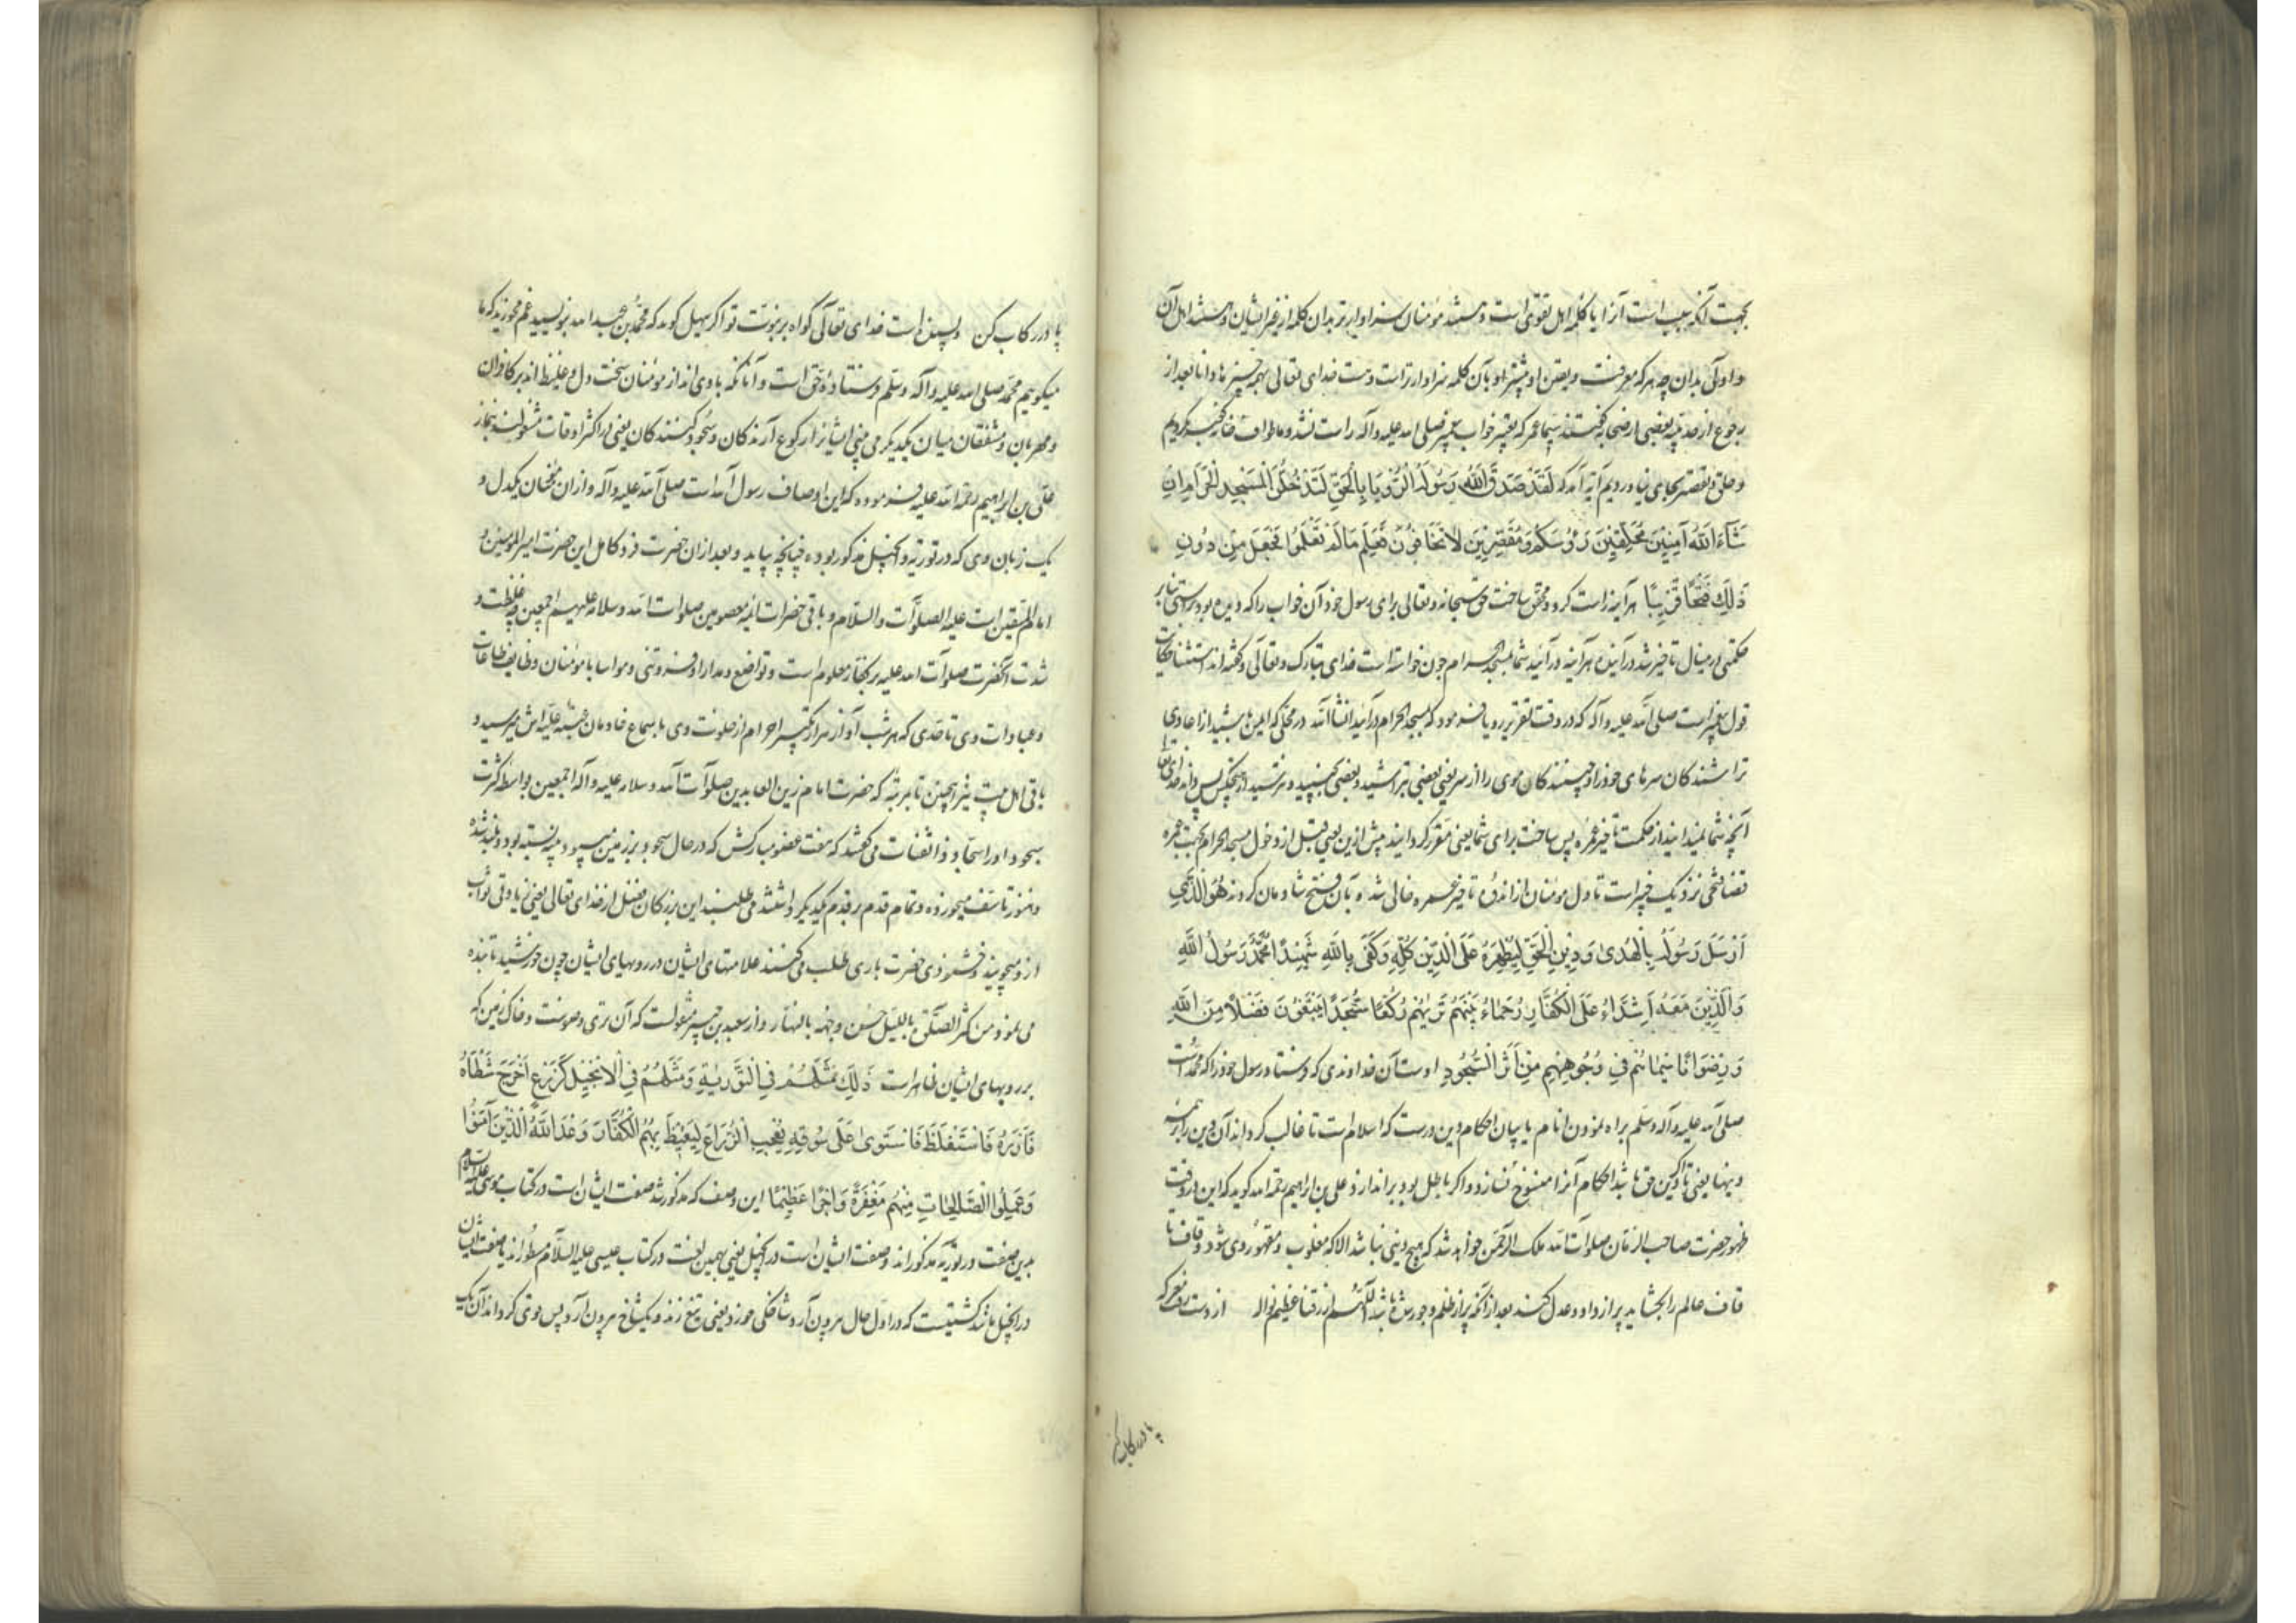 بجهت آنکه سبب است آنرا یا کلمه اهل تقوی است و هستند مومنان سزاوارتر بدان کلمه از غیر ایشان و هستند اهل آن
و اولی بدان چه هر که معرفت و یقین او بیشتر او بآن کلمه سزاوارتر است و هست خدای تعالی بهمه چیزها دانا بعد از
رجوع از حدیبیه بعضی از صحابه گفتند سیما عمر که تعبیر خواب پیغمبر صلی الله علیه و آله راست نشد و ما طواف خانه کعبه نکردیم
و حلق و تقصیر بجای نیاوردیم آیه آمد که لَقَدْ صَدَقَ اللَّهُ رَسُولَهُ الرُّؤْيَا بِالْحَقِّ لَتَدْخُلُنَّ الْمَسْجِدَ الْحَرَامَ اِنْ
شَآءَ اللَّهُ آمِنِينَ مُحَلِّقِينَ رَؤُسَكُمْ وَمُقَصِّرِينَ لَا تَخَافُونَ فَعَلِمَ مَا لَمْ تَعْلَمُوا فَجَعَلَ مِنْ دُونِ
ذٰلِكَ فَتْحًا قَرِيبًا هر آینه راست کرد و محقق ساخت حق سبحانه و تعالی برای رسول خود آن خواب را که دیده بود براستی بنابر
حکمتی امسال تاخیر شد در آینده هر آینه در آئید شما بمسجد الحرام چون خواسته است خدای تبارک و تعالی و گفته اند استثنا حکایت
قول پیغمبر است صلی الله علیه و آله که در وقت تقریر رویا فرمود که بمسجد الحرام در آئید انشاالله در محلی که ایمن باشید از اعادی
تراشندگان سرهای خود را و چینندگان موی را از سر یعنی بعضی بتراشید و بعضی بچینید و نترسید از هیچکس پس داند خدای تعالی
آنچه شما نمیدانید از حکمت تاخیر عمره پس ساخت برای شما یعنی مقرر گردانید پیش ازین یعنی قبل از دخول مسجد الحرام بجهت عمره
قضا فتحی نزدیک خیبر است تا دل مومنان از اندوه تاخیر عمره خالی شده بآن فتح شادمان گردند هُوَ الَّذِي
اَرْسَلَ رَسُولَهُ بِالْهُدىٰ وَدِينِ الْحَقِّ لِيُظْهِرَهُ عَلَى الدِّينِ كُلِّهِ وَكَفىٰ بِاللَّهِ شَهِيدًا مُحَمَّدٌ رَسُولُ اللَّهِ
وَالَّذِينَ مَعَهُ اَشِدَّاءُ عَلَى الْكُفَّارِ رُحَمَاءُ بَيْنَهُمْ تَرٰيهُمْ رُكَّعًا سُجَّدًا يَبْتَغُونَ فَضْلًا مِنَ اللَّهِ
وَرِضْوَانًا سِيمَاهُمْ فِي وُجُوهِهِمْ مِنْ اَثَرِ السُّجُودِ اوست آن خداوندی که فرستاد رسول خود را که محمد است
صلی الله علیه و آله وسلم براه نمودن انام یا ببیان احکام و دین درست که اسلام است تا غالب گرداند آن دین را بر همه
دینها یعنی تا اگر دین حق باشد احکام آنرا منسوخ سازد و اگر باطل بود بر اندازد و علی بن ابراهیم رحمه الله گوید که این در وقت
ظهور حضرت صاحب الزمان صلوات الله ملک الرحمن خواهد شد که هیچ دینی نباشد الا که مغلوب و مقهور وی شود و قاف تا
قاف عالم را بگشاید پر از داد و عدل کند بعد از آنکه پر از ظلم و جور شده باشد اللهم ارزقنا عظیم نواله از دست رفت معرکه
پا در رکاب کن
پا در رکاب کن و بسنده است خدای تعالی گواه بر نبوت تو اگر سهیل گوید که محمد بن عبد الله بنویسید غم مخورید که ما
میگوییم محمد صلی الله علیه و آله وسلم فرستاده حق است و آنانکه با وی اند از مومنان سخت دل و غلیظ اند بر کافران
و مهربان و مشفقان میان یکدیگر می بینی ایشانرا رکوع آرندگان و سجود کنندگان یعنی در اکثر اوقات مشغولند بنماز
علی بن ابراهیم رحمة الله علیه فرموده که این اوصاف رسول الله است صلی الله علیه و آله و از آن مخلصان یکدل و
یک زبان وی که در توریة و انجیل مذکور بوده چنانچه بیاید و بعد از آن حضرت فرد کامل این حضرت امیر المومنین و
امام المتقین است علیه الصلوات والسلام و باقی حضرات ائمه معصومین صلوات الله و سلامه علیهم اجمعین چه غلظت و
شدت آنحضرت صلوات الله علیه بر کفار معلوم است و تواضع و مدارا و فروتنی و مواسا با مومنان و وظایف طاعات
و عبادات وی تا حدی که هر شب آواز هزار تکبیر احرام از خلوت وی باسماع خادمان عتبه علیه اش میرسید و
باقی اهل بیت نیز همچنین تا بمرتبه که حضرت امام زین العابدین صلوات الله و سلامه علیه و آله اجمعین بواسطه کثرت
سجود او را سجاد و ذا الثفنات می گفتند که هفت عضو مبارکش که در حال سجود بر زمین میسود پینه بسته بود و بلند شده
و هنوز تاسف میخورده و تمام قدم بر قدم یکدیگر داشتند می طلبند این بزرگان فضل از خدای تعالی یعنی زیادتی ثواب
ازو میجویند و خشنودی حضرت باری طلب می کنند علامتهای ایشان در رویهای ایشان چون خورشید تابنده
می نمود و من کثر الصلوة باللیل حسن وجهه بالنهار و از سعید بن جبیر منقولست که آن تری وضوست و خاک زمین که
بر رویهای ایشان ظاهر است ذٰلِكَ مَثَلُهُمْ فِي التَّوْرٰيةِ وَمَثَلُهُمْ فِي الْاِنْجِيلِ كَزَرْعٍ اَخْرَجَ شَطْاَهُ
فَآزَرَهُ فَاسْتَغْلَظَ فَاسْتَوىٰ عَلىٰ سُوقِهِ يُعْجِبُ الزُّرَّاعَ لِيَغِيظَ بِهِمُ الْكُفَّارَ وَعَدَ اللَّهُ الَّذِينَ آمَنُوا
وَعَمِلُوا الصَّالِحَاتِ مِنْهُمْ مَغْفِرَةً وَاَجْرًا عَظِيمًا این وصف که مذکور شد صفت ایشان است در کتاب موسی علیه السلام
بدین صفت در توریة مذکوراند و صفت ایشان است در انجیل یعنی بهمین لغت در کتاب عیسی علیه السلام مسطوراند یا صفت ایشان
در انجیل مانند کشتیست که در اول حال بیرون آرد شاخکی خورد یعنی تیغ زند و یکشاخ بیرون آرد پس قوی گرداند آن یک